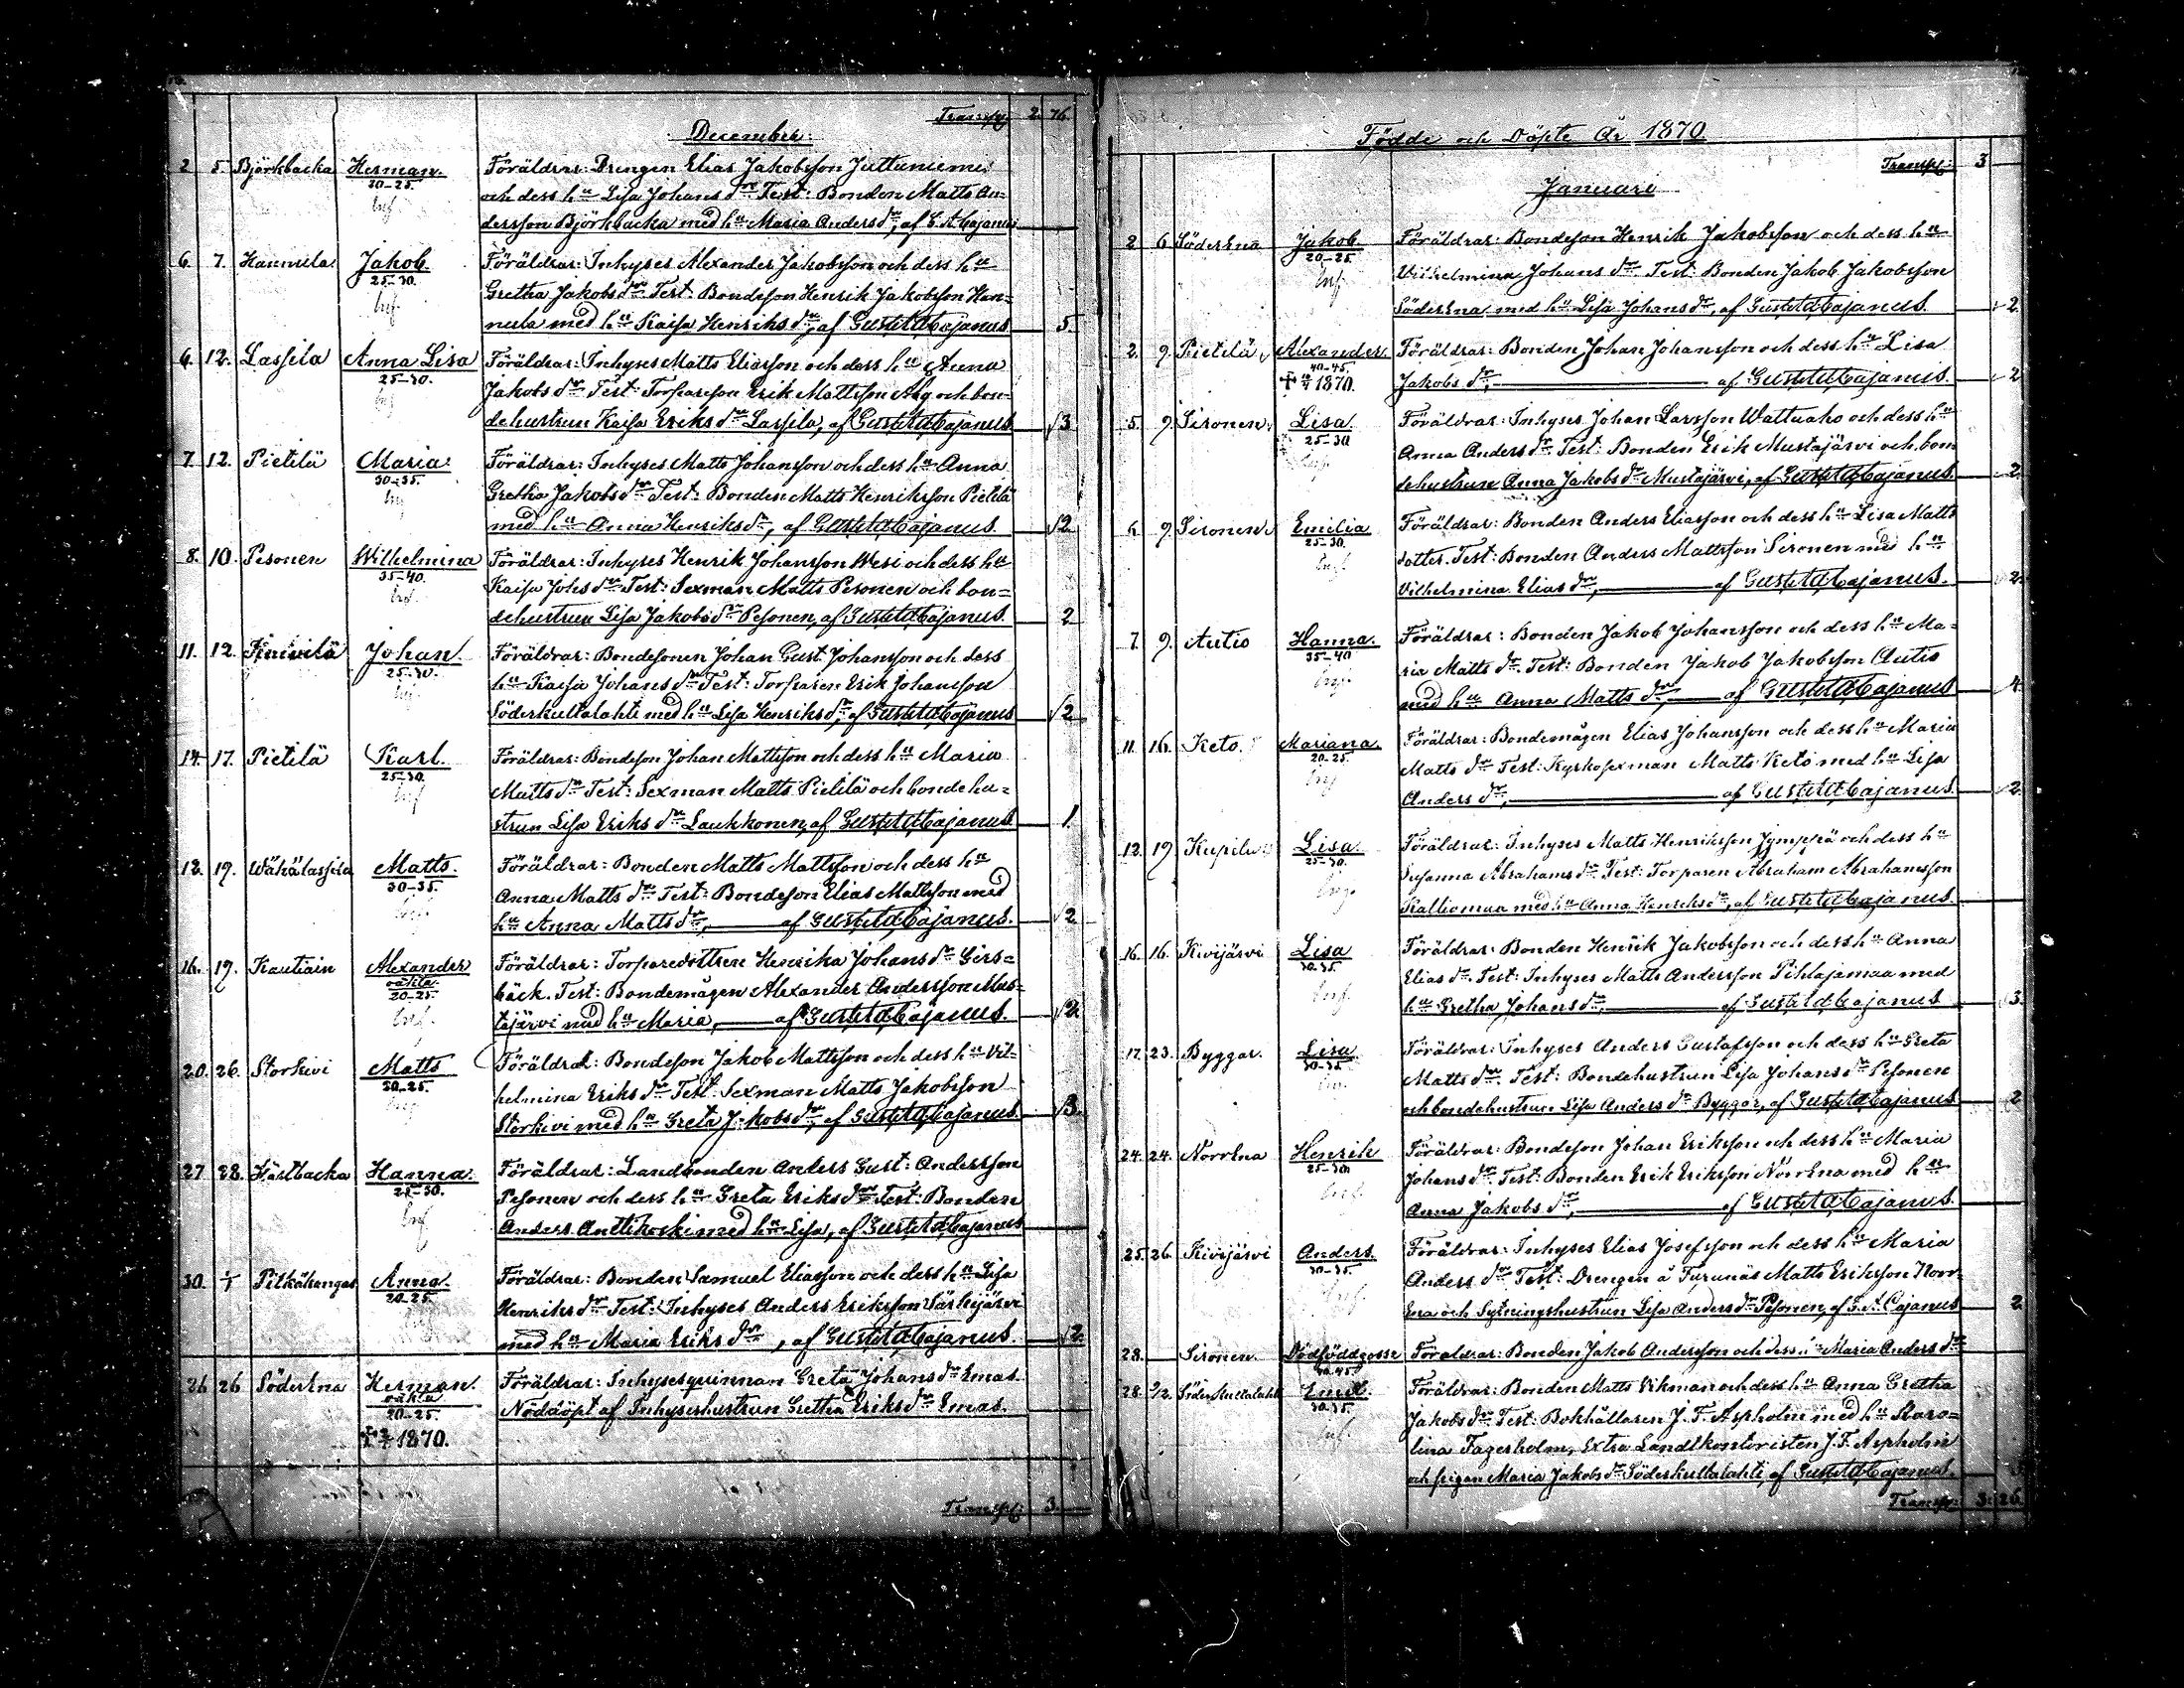 Transp: 2. 76.
December.
2 5. Björkbacka Herman. Föräldrar: Drengen Elias Jakobsson Juttuniemi
20-25. och dess hu Lisa Johans dr Test: Bonden Matts An=
dersson Björkbacka med hu Maria Anders dr, af G. A. Cajanus
6. 7. Hannila Jakob. Föräldrar: Inhyses Alexander Jakobsson och dess hu
25-30. Gretha Jakobs dr Test: Bondeson Henrik Jakobsson Han=
nula med hu Kaisa Henriks dr, af Gust. Ad. Cajanus 5.
6. 12. Lassila Anna Lisa Föräldrar: Inhyses Matts Eliasson och dess hu Anna
25-30. Jakobs dr Test: Torparson Erik Mattsson Ahg och bon=
dehustrun Kaisa Eriks dr Lassila, af Gust. Ad. Cajanus 3
7 12. Pietilä Maria. Föräldrar: Inhyses Matts Johansson och dess hu Anna
30-35. Gretha Jakobs dr Test: Bonden Matts Henriksson Pietilä
med hu Anna Henriks dr, af Gust. Ad. Cajanus. 2
8. 10. Pesonen Wilhelmina Föräldrar: Inhyses Henrik Johansson Wesi och dess hu
35-40. Kaisa Johs dr Test: Sexman Matts Pesonen och bon=
dehustrun Lisa Jakobs dr Pesonen, af Gust. Ad. Cajanus. 2
11. 12. Kinivilä Johan. Föräldrar: Bondesonen Johan Gust. Johansson och dess
25-30. hu Kaisa Johans dr Test: Torparen Erik Johansson
Söderkultalahti med hu Lisa Henriks dr, af Gust. Ad. Cajanus 2
14. 17. Pietilä Karl. Föräldrar: Bondeson Johan Mattsson och dess hu Maria
25-30. Matts dr Test: Sexman Matts Pietilä och bondehu=
strun Lisa Eriks dr Laukkonen, af Gust. Ad. Cajanus 1.
12. 19. Wähälassila Matts. Föräldrar: Bonden Matts Mattsson och dess hu
30-35. Anna Matts dr Test: Bondeson Elias Mattsson med
hu Anna Matts dr, af Gust. Ad. Cajanus. 2
16. 19. Kautiain Alexander Föräldrar: Torparedottren Henrika Johans dr Gers=
oäkta 20-25. bäck. Test: Bondemågen Alexander Andersson Mus=
tajärvi med hu Maria, af Gust. Ad. Cajanus. 2.
20. 26. Storkivi Matts Föräldrar: Bondeson Jakob Mattsson och dess hu Vil=
20-25. helmina Eriks dr Test: Sexman Matts Jakobsson
Storkivi med hu Greta Jakobs dr, af Gust. Ad. Cajanus. 3.
27 28. Hästbacka Hanna. Föräldrar: Landbonden Anders Gust: Andersson
25-30. Pesonen och dess hu Greta Eriks dr Test: Bonden
Anders Anttikoski med hu Lisa, af Gust. Ad. Cajanus
30. 1/1 Pitkäkangas Anna. Föräldrar: Bonden Samuel Eliasson och dess hu Lisa
20-25. Henriks dr Test: Inhyses Anders Eriksson Särkijärvi
med hu Maria Eriks dr, af Gust. Ad. Cajanus. 2.
26 26 SöderEna Herman. Föräldrar: Inhysesquinnan Greta Johans dr Emas.
oäkta 20-25. Nöddöpt af Inhyseshustrun Gretha Eriks dr Emas.
1870.
Transp: 3.
Födde och Döpte År 1870
Transp: 3
Januari
2 6. SöderEna Jakob Föräldrar: Bondeson Henrik Jakobsson och dess hu
20-25. Vilhelmina Johans dr Test: Bonden Jakob Jakobsson
SöderEna med hu Lisa Johans dr, af Gust. Ad. Cajanus. 2.
2. 9. Pietilä Alexander Föräldrar: Bonden Johan Johansson och dess hu Lisa
40-45. 1870. Jakobs dr, af Gust. Ad. Cajanus. 2
5. 9. Sironen Lisa. Föräldrar: Inhyses Johan Larsson Wattuaho och dess hu
25-30 Anna Anders dr Test: Bonden Erik Mustajärvi och bon
dehustrun Anna Jakobs dr Mustajärvi, af Gust. Ad. Cajanus. 2.
6 9. Sironen Emilia Föräldrar: Bonden Anders Eliasson och dess hu Lisa Matts
25-30. dotter. Test: Bonden Anders Mattsson Sironen med hu
Vilhelmina Elias dr, af Gust. Ad. Cajanus. 2.
7. 9. Autio Hanna. Föräldrar: Bonden Jakob Johansson och dess hu Ma=
35-40 ria Matts dr Test: Bonden Jakob Jakobsson Autio
med hu Anna Matts dr, af Gust. Ad. Cajanus 4.
11. 16. Keto. Mariana. Föräldrar: Bondemågen Elias Johansson och dess hu Maria
20-25. Matts dr Test: Kyrkosexman Matts Keto med hu Lisa
Anders dr, af Gust. Ad. Cajanus. 2.
12. 19 Kupila Lisa. Föräldrar: Inhyses Matts Henriksson Jymppä och dess hu
25-30. Susanna Abrahams dr Test: Torparen Abraham Abrahamsson
Kalliomaa med hu Anna Henriks dr, af Gust. Ad. Cajanus.
16. 16. Kivijärvi Lisa Föräldrar: Bonden Henrik Jakobsson och dess hu Anna
30-35. Elias dr Test: Inhyses Matts Andersson Pihlajamaa med
hu Gretha Johans dr, af Gust. Ad. Cajanus 3.
17. 23. Byggar. Lisa Föräldrar: Inhyses Anders Gustafsson och dess hu Greta
30-35. Matts dr Test: Bondehustrun Lisa Johans dr Pesonen
och bondehustrun Lisa Anders dr Byggar, af Gust. Ad. Cajanus 2
24. 24. NorrEna Henrik Föräldrar: Bondeson Johan Eriksson och dess hu Maria
25-30. Johans dr Test: Bonden Erik Eriksson NorrEna med hu
Anna Jakobs dr, af Gust. Ad. Cajanus.
25. 26. Kivijärvi Anders. Föräldrar: Inhyses Elias Josefsson och dess hu Maria
30-35. Anders dr Test: Drengen å Furunäs Matts Eriksson Norr
Ena och Sytningshustrun Lisa Anders dr Pesonen, af G. A. Cajanus 2.
28. Sironen. Dödföddgosse Föräldrar: Bonden Jakob Andersson och dess hu Maria Anders dr
40-45.
28. 2/2. Söderkultalahti Emil. Föräldrar: Bonden Matts Wikman och dess hu Anna Gretha
30-35. Jakobs dr Test: Bokhållaren J. F. Aspholm med hu Karo=
lina Fagerholm, Extra Landtkontoristen J. F. Aspholm
och pigan Maria Jakobs dr Söderkultalahti, af Gust. Ad. Cajanus.
Transp: 3. 26.